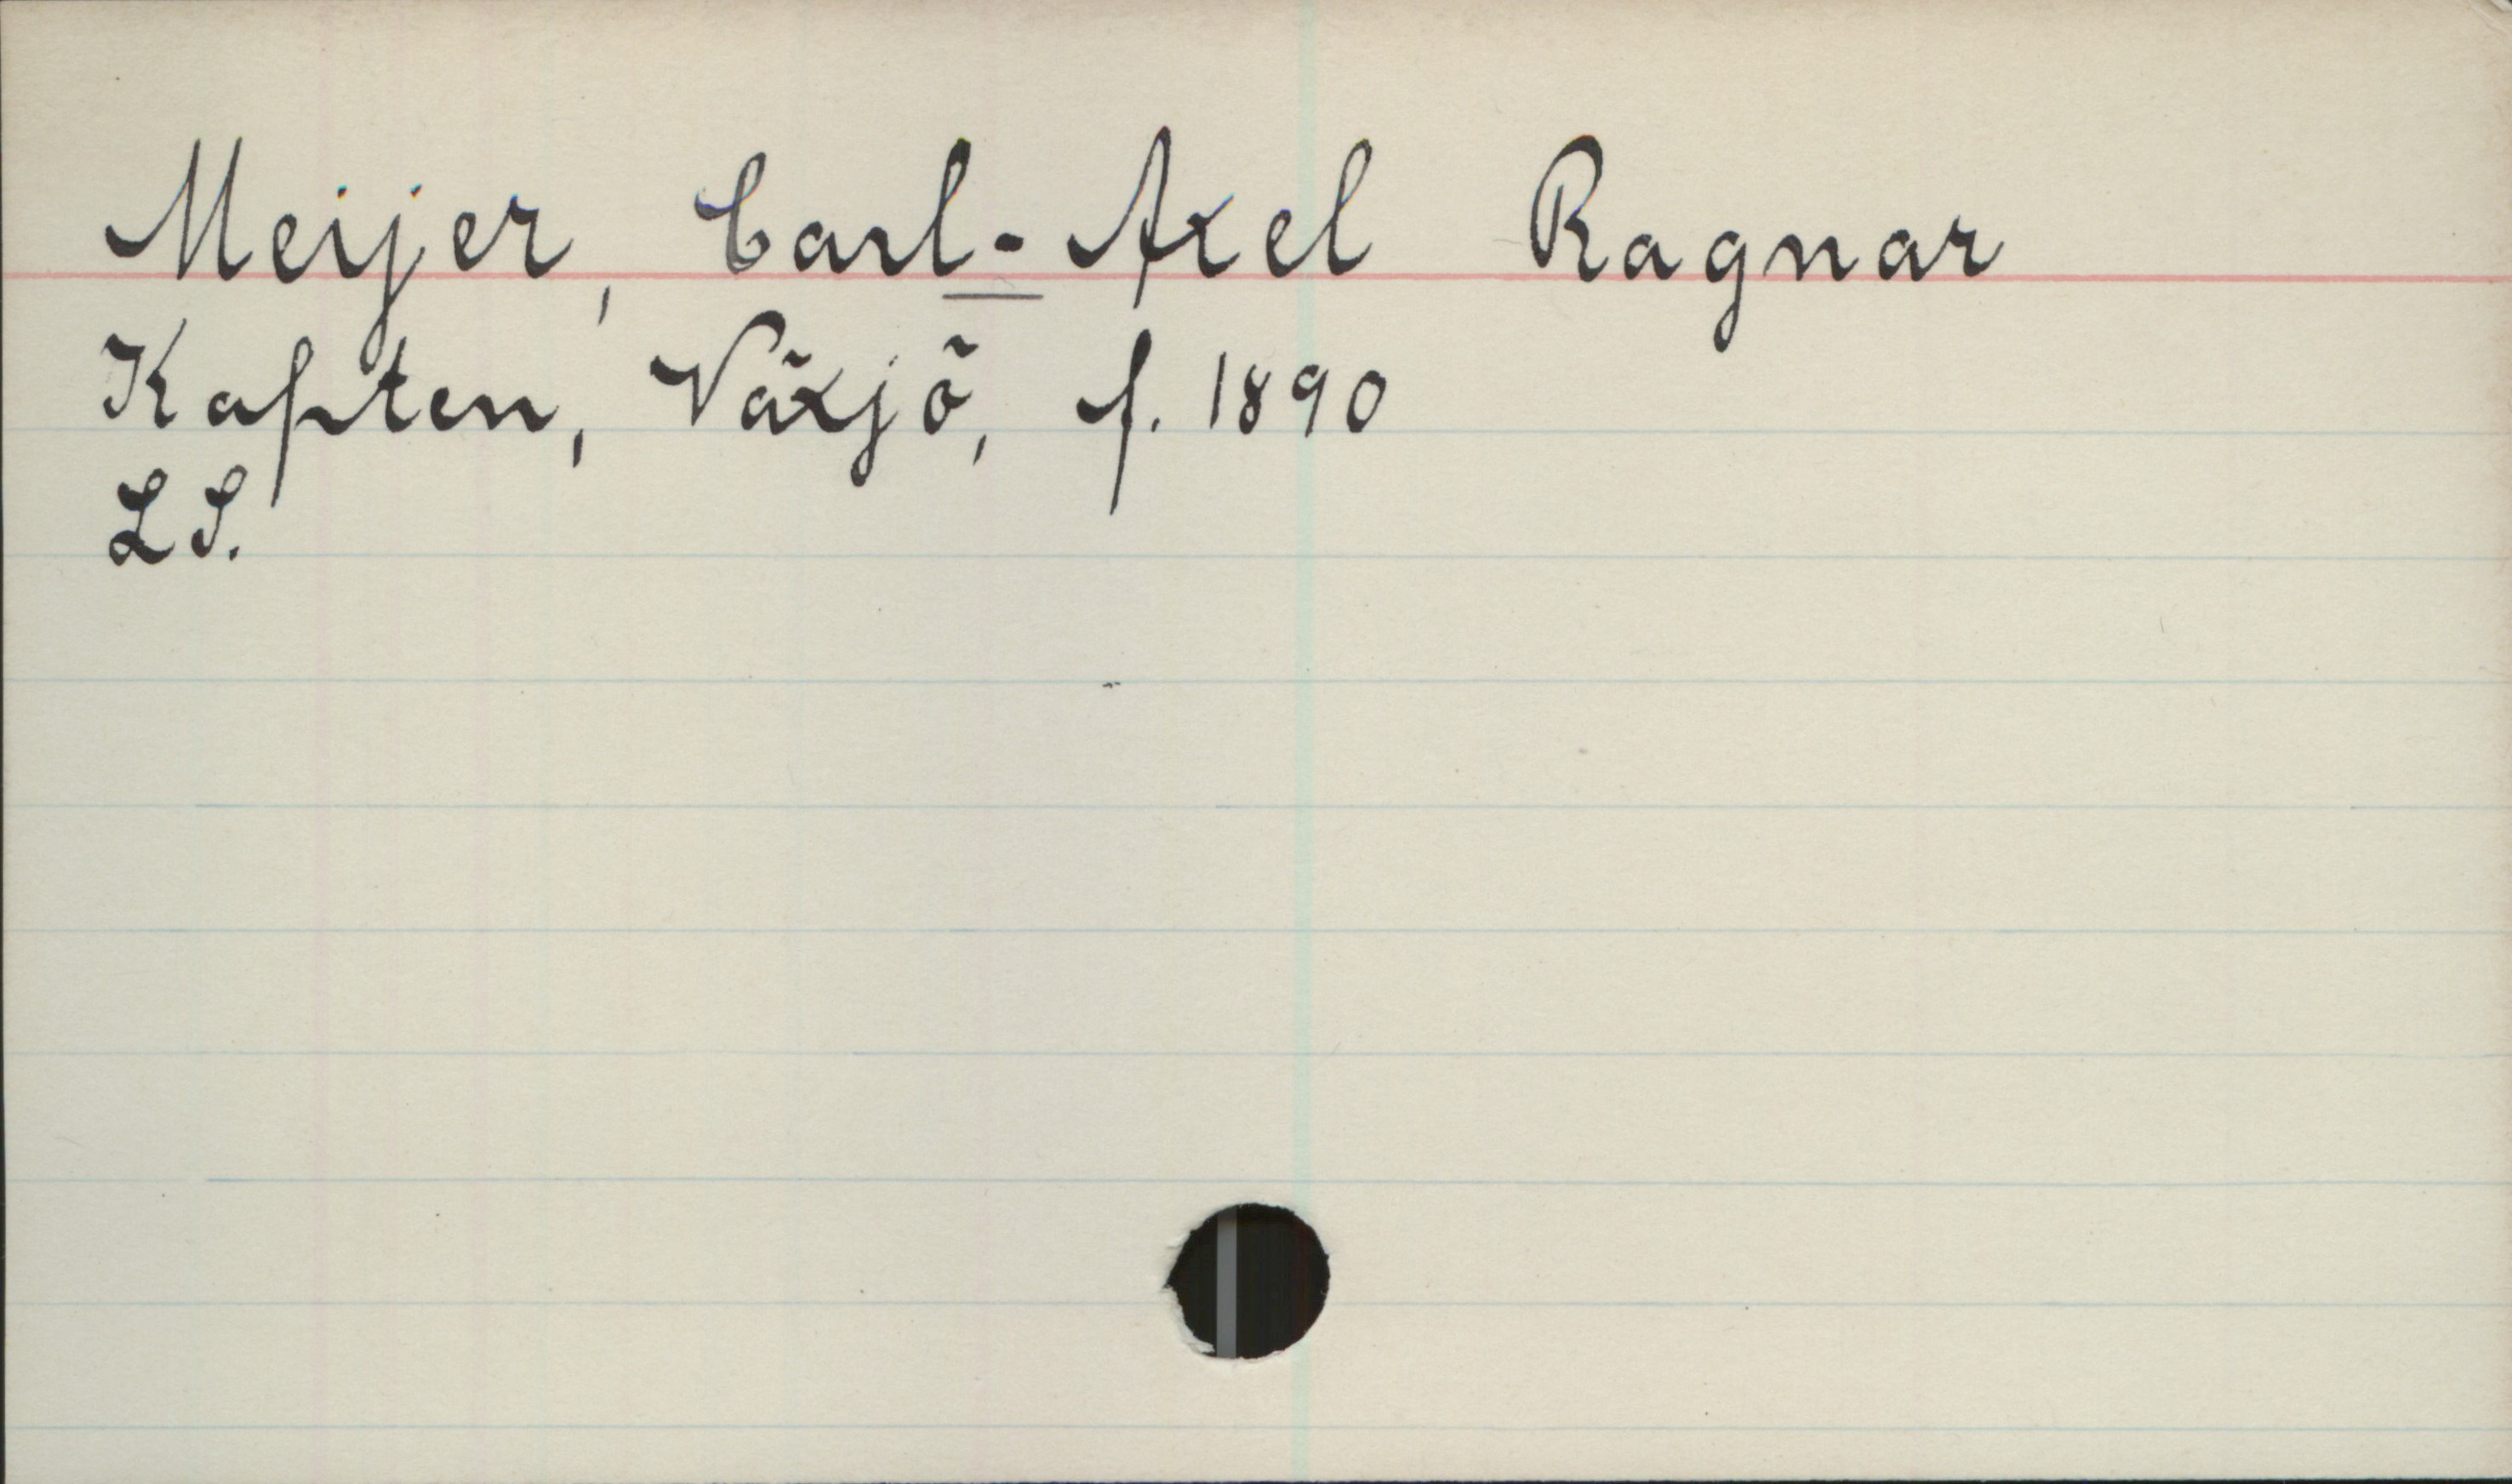 Meijer, Carl-Axel Ragnar
Kapten, Växjö, f. 1890
L S.